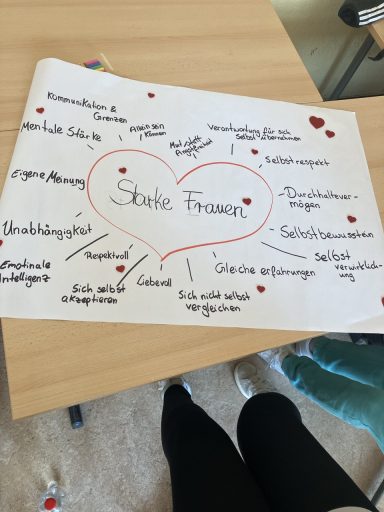 Starke Frauen
Kommunikation &
Grenzen
Allein sein
können
Mut statt
Verantwortung für sich
selbst übernehmen
Mentale Stärke
Selbstrespekt
Eigene Meinung
Durchhaltever-
mögen
Unabhängigkeit
Selbstbewusstein
Selbst
verwirklich-
ung
Emotinale
Intelligenz
Respektvoll
Sich selbst
akzeptieren
Liebevoll
Sich nicht selbst
vergleichen
Gleiche erfahrungen